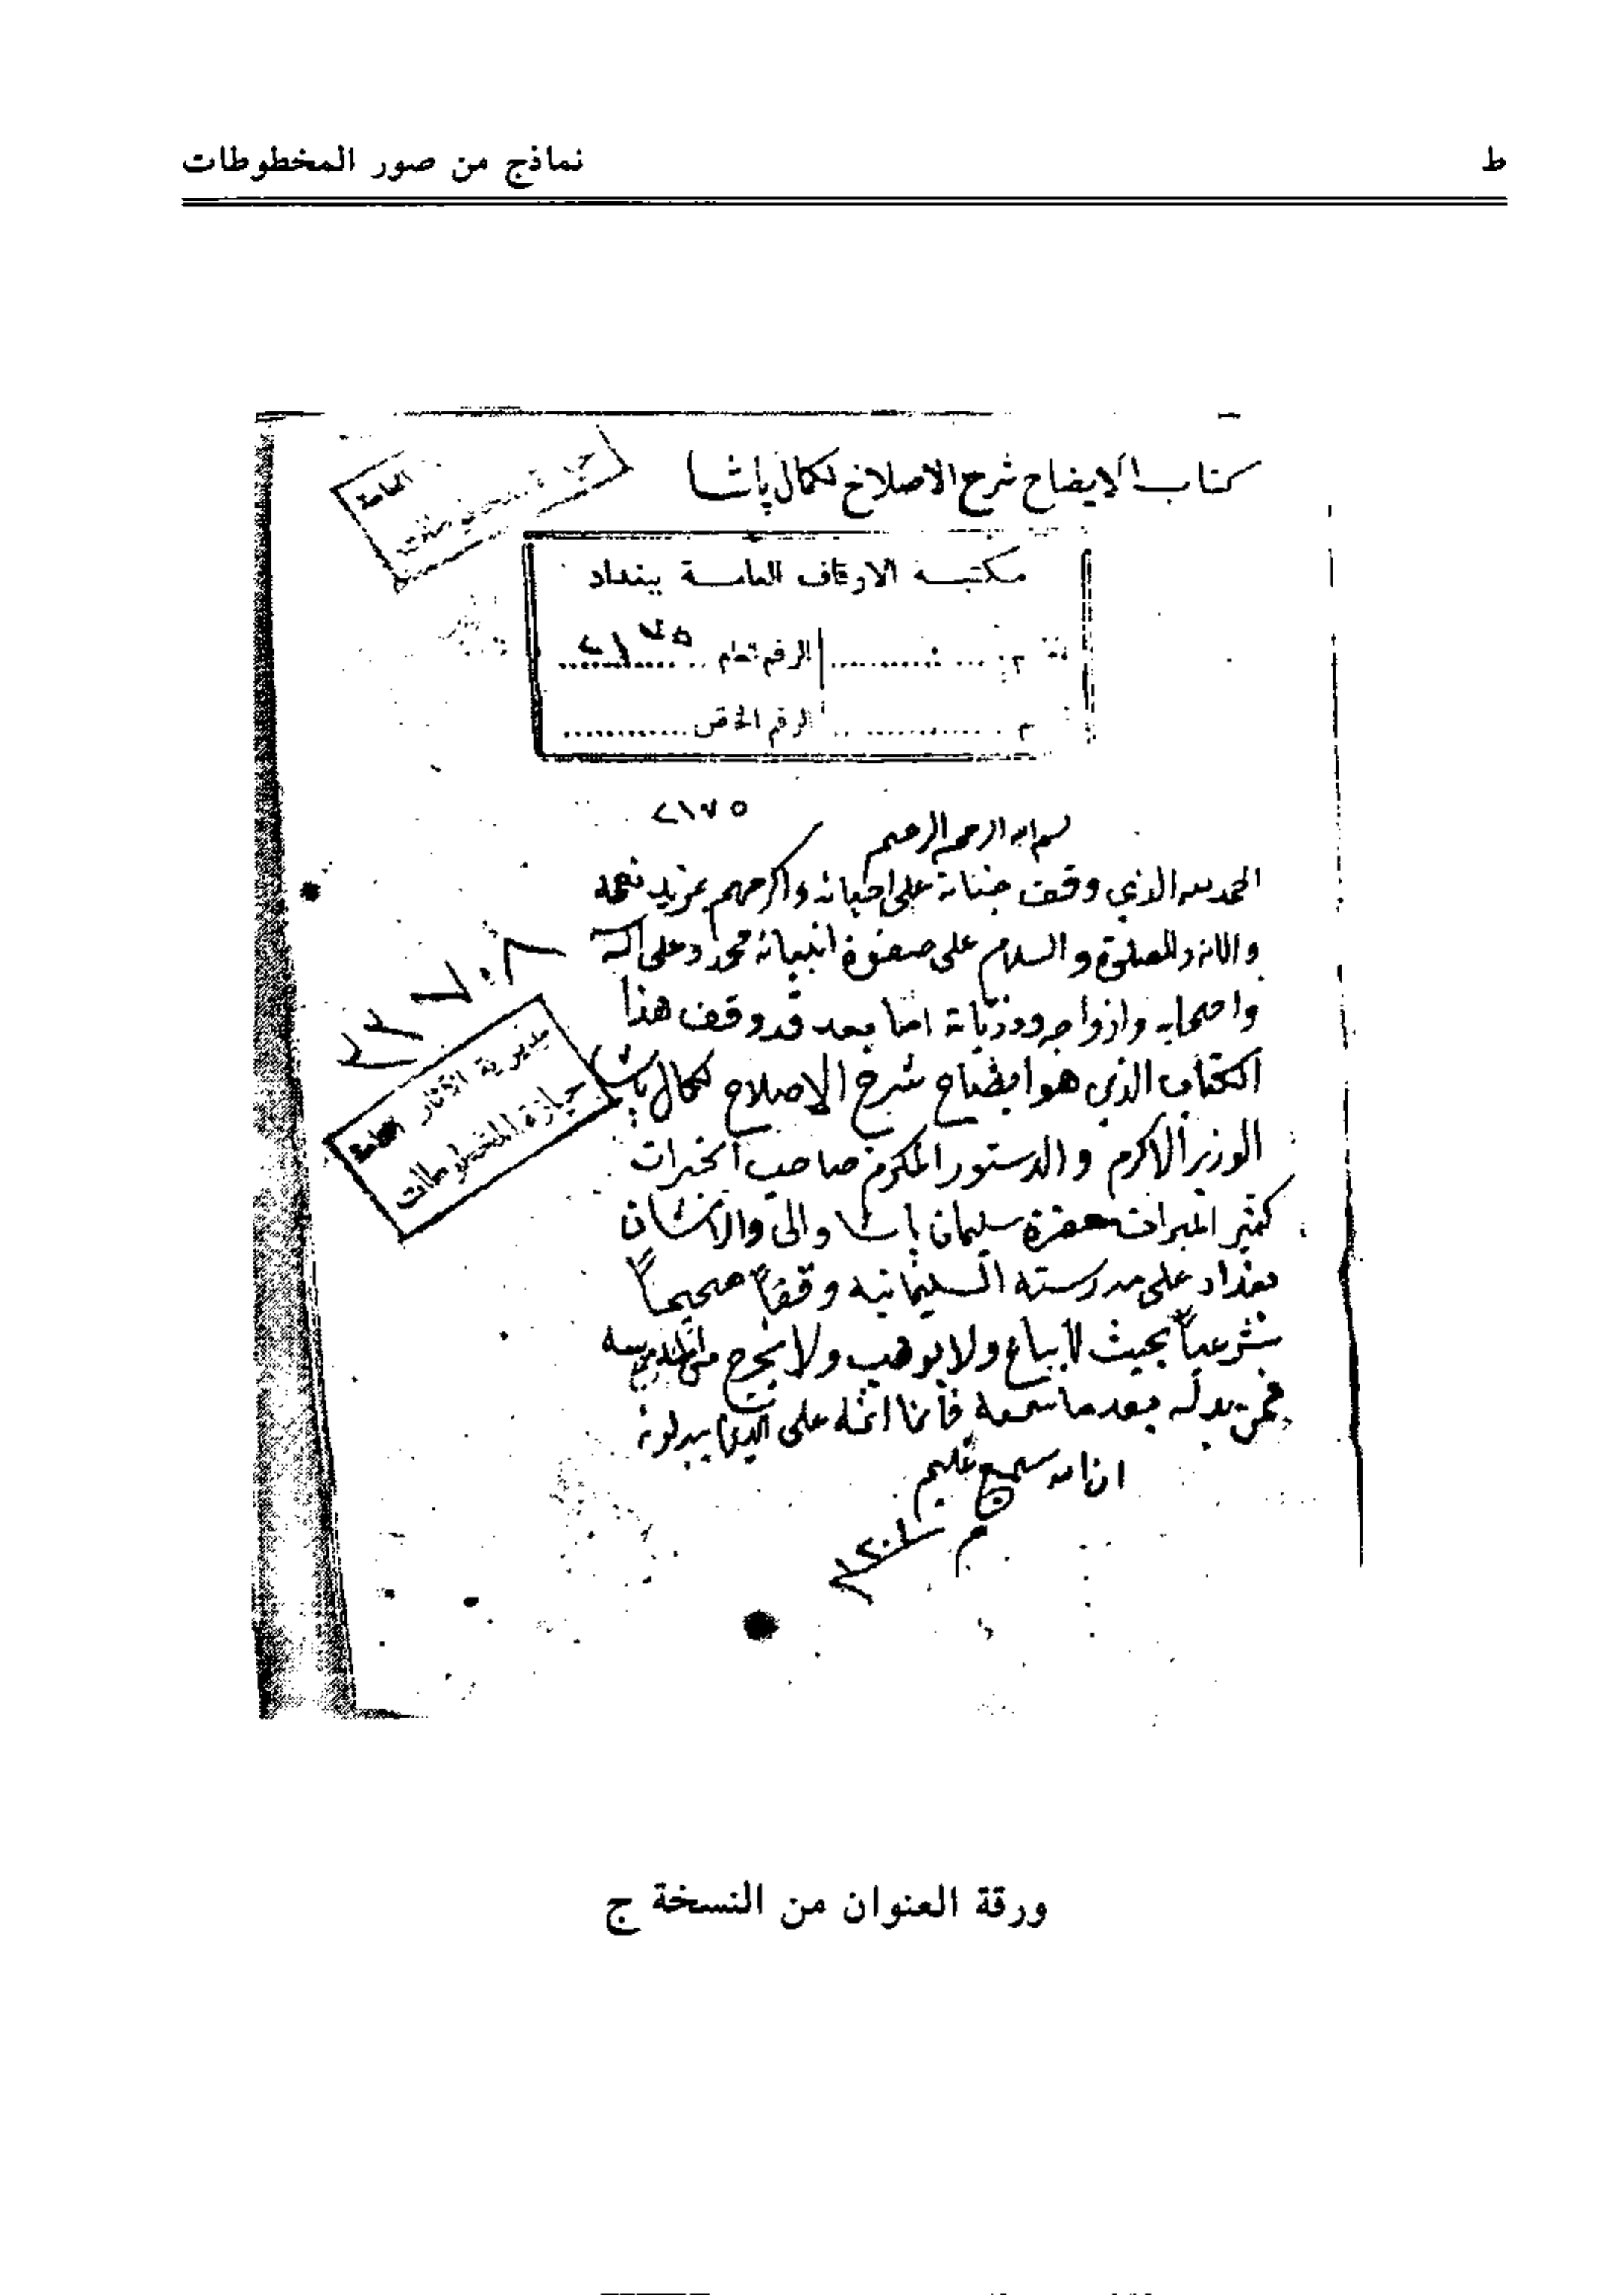 ط
نماذج من صور المخطوطات
كتاب الايضاح شرح الاصلاح لكمال پاشا
العامة
مكتبة الاوقاف العامة ببغداد
الرقم العام ٢١٧٥
الرقم الخاص
٢١٧٥
بسم الله الرحمن الرحيم
الحمد لله الذي وقف جنانه على احبائه واكرمهم بمزيد نعمه
والائه والصلوة والسلام على صفوة انبيائه محمد وعلى اله
واصحابه وازواجه وذرياته اما بعد قد وقف هذا
الكتاب الذي هو ايضاح شرح الاصلاح لكمال پاشا
الوزير الاكرم والدستور المكرم صاحب الخيرات
كثير المبرات حضرة سليمان پاشا والى والانشان
بغداد على مدرسته السليمانيه وقفاً صحيحاً
شرعياً بحيث لا يباع ولا يوهب ولا يخرج من المدرسه
فمن بدله بعد ما سمعه فانما اثمه على الذين يبدلونه
ان الله سميع عليم
م
مديرية الآثار العامة
حيازة المخطوطات
ورقة العنوان من النسخة ج